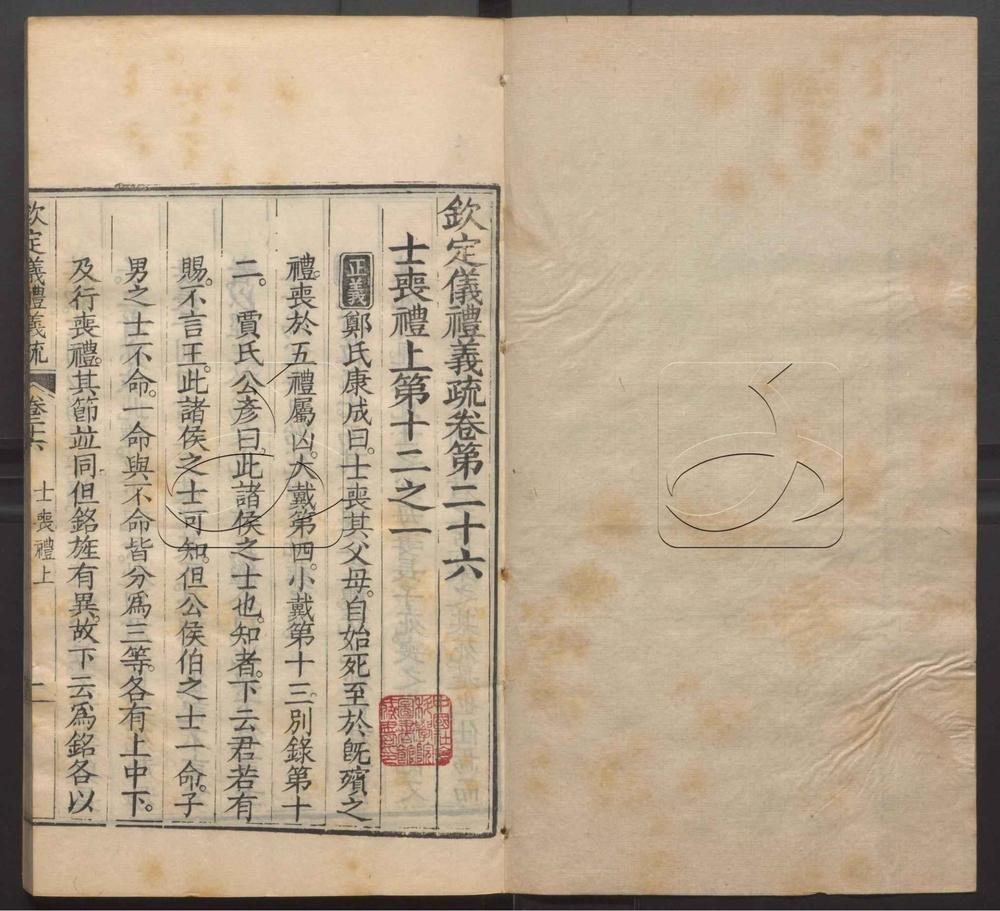 欽定儀禮義疏卷第二十六
士喪禮上第十二之一
正義鄭氏康成曰。士喪其父母。自始死至於既殯之
禮。喪於五禮屬凶。大戴第四。小戴第十三。別錄第十
二。賈氏公彥曰。此諸侯之士也。知者。下云君若有
賜。不言王。此諸侯之士可知。但公侯伯之士一命。子
男之士不命。一命與不命皆分爲三等。各有上中下。
及行喪禮。其節並同。但銘旌有異。故下云爲銘各以
欽定儀禮義疏 卷二十六 士喪禮上 一
中國社會科學院圖書館藏書